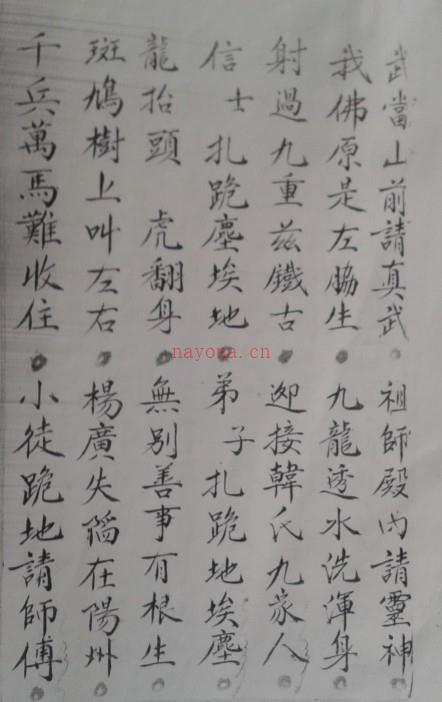 武當山前請真武 祖師殿内請靈神
我佛原是左脇生 九龍透水洗渾身
射過九重兹鐵古 迎接韓氏九家人
信士扎跪塵埃地 弟子扎跪地埃塵
龍抬頭 虎翻身 無別善事有根生
斑鳩樹上叫左右 楊廣失𨹧在陽州
千兵萬馬難收住 小徒跪地請師傅
nayona.cn